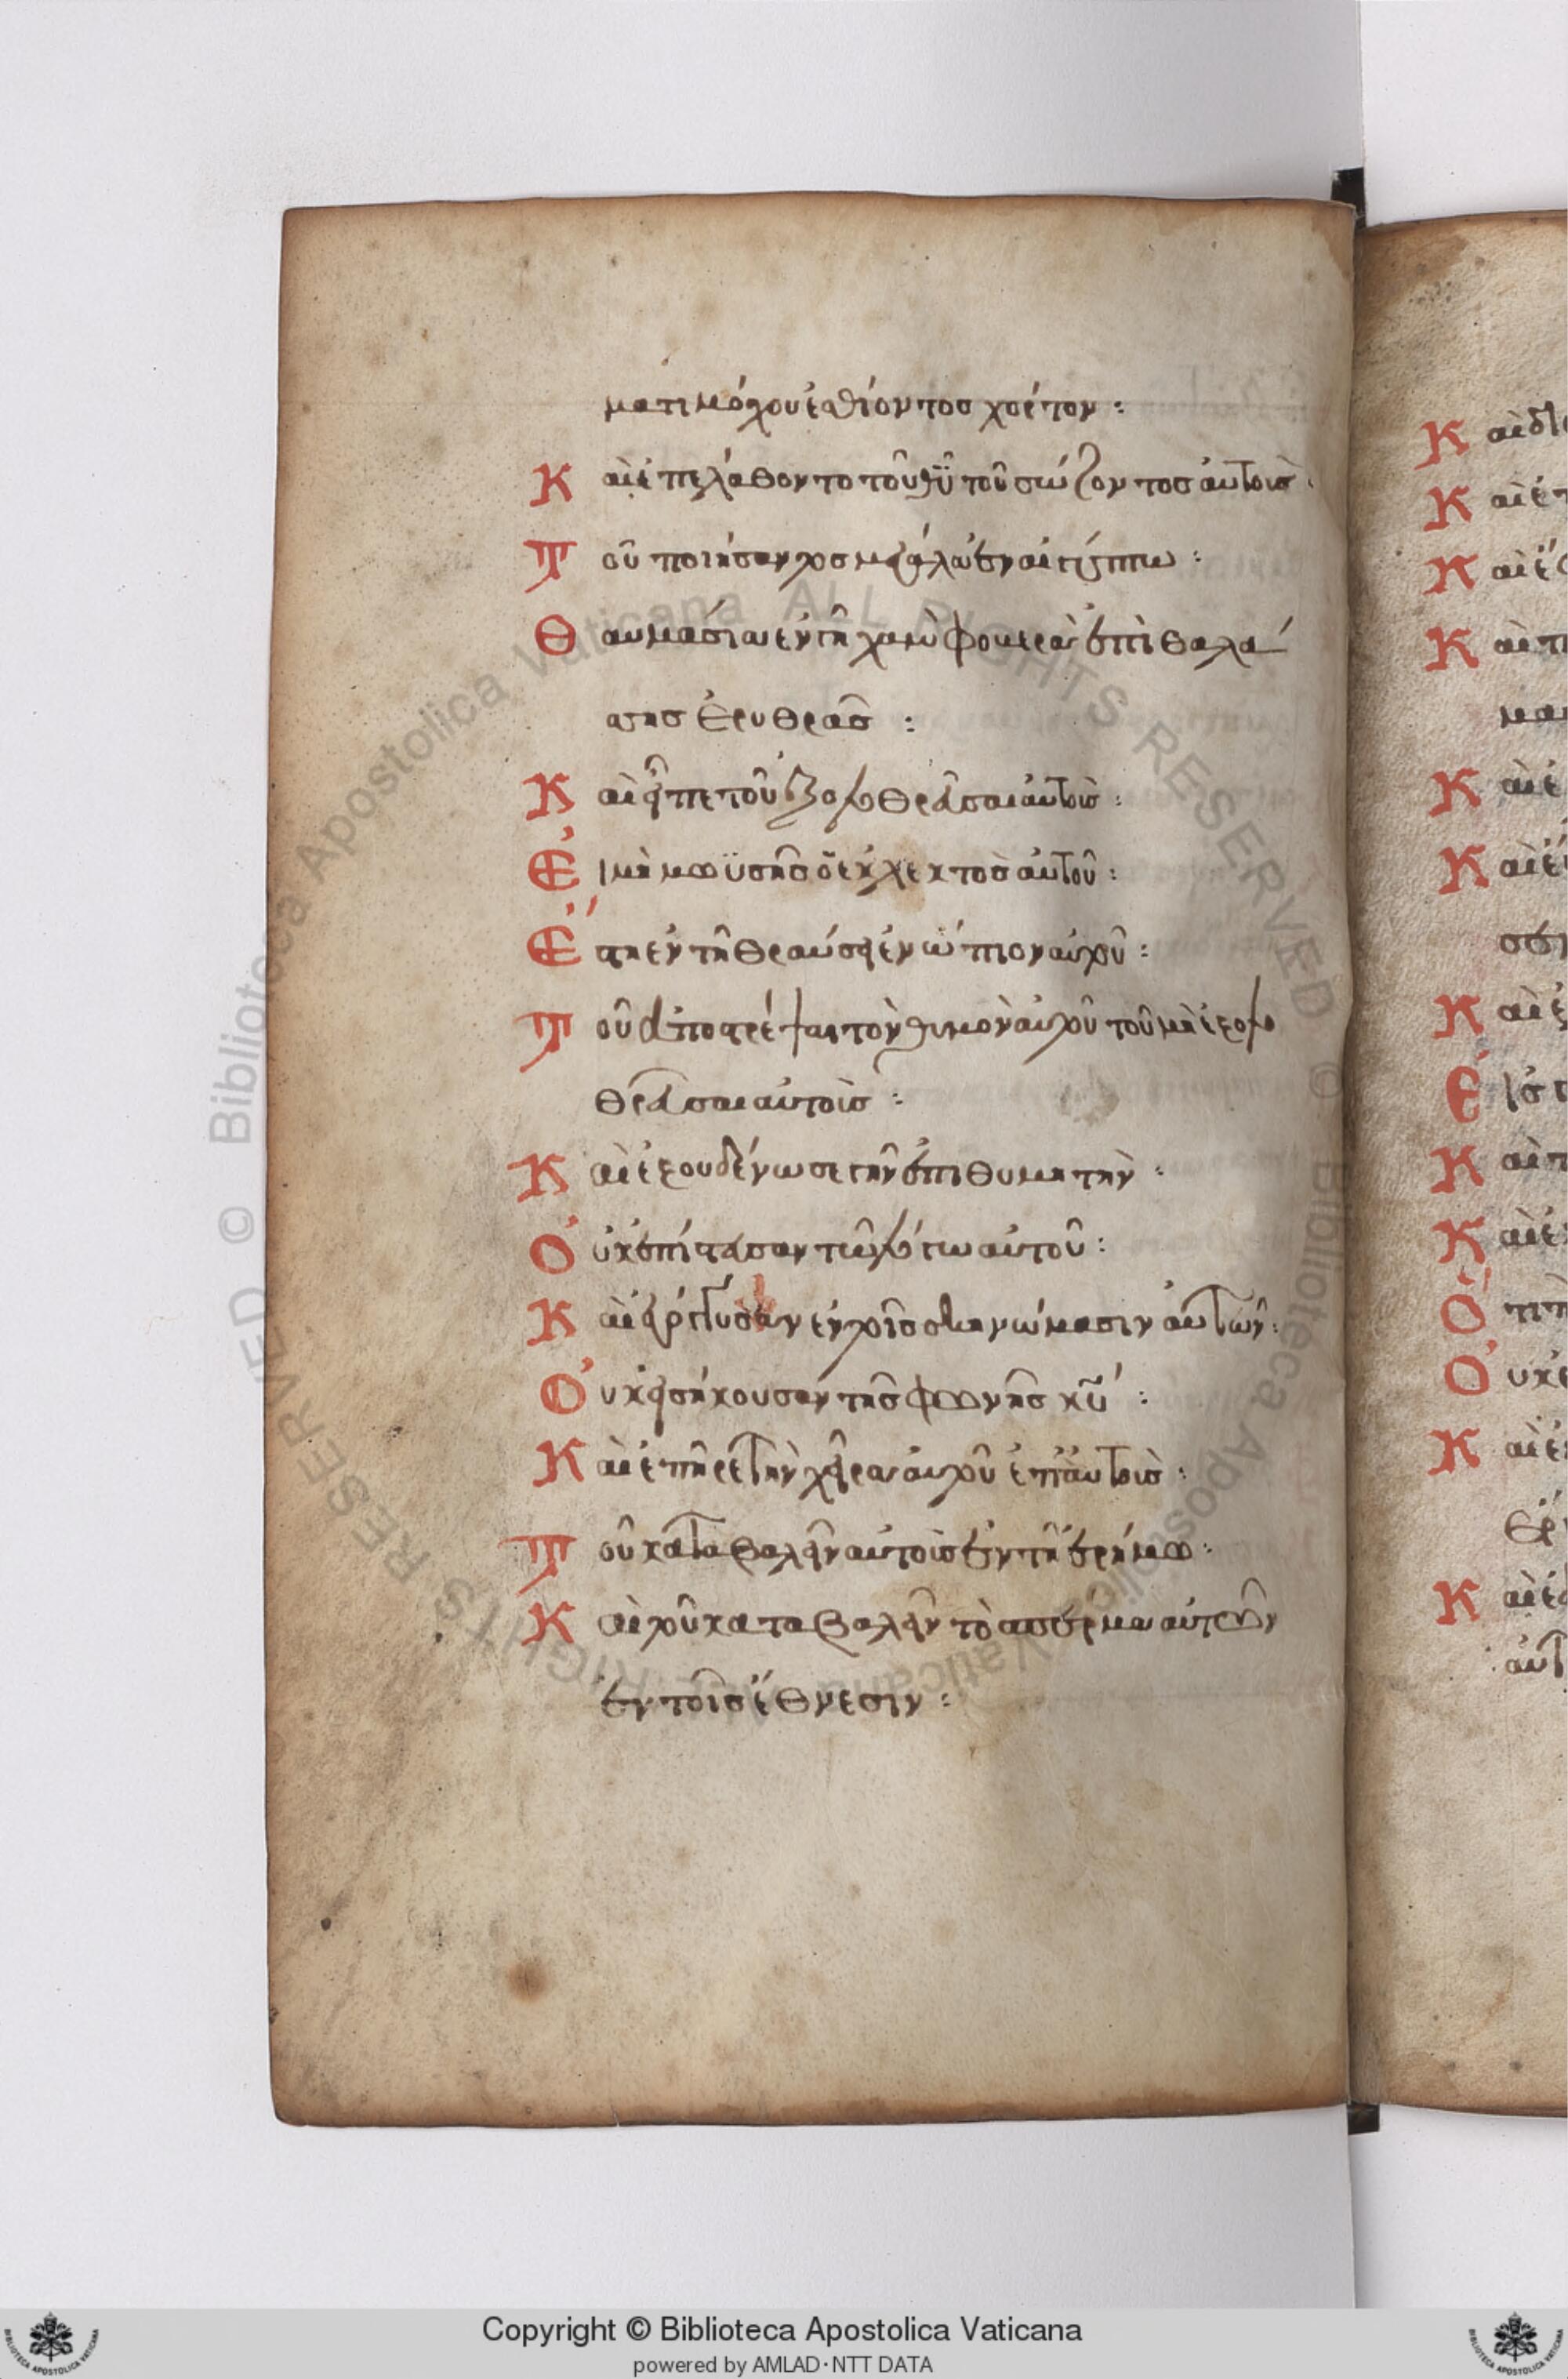 ματι μόσχου ἐσθίοντοσ χόρτον :
Καὶ ἐπελάθοντο τοῦ θῦ τοῦ σώζοντοσ αὐτοισ :
Τοῦ ποιήσαντοσ μεγάλα ἐν αἰγύπτω :
Θαυμάσια ἐν γῆ χαμ φουερὰ ἐπὶ θαλά
σσησ ἐρυθρασ :
Καὶ εἶπε τοῦ ἐξολοθρεῦσαι αὐτοισ :
Εἰ μὴ μωϋσῆσ ὁ ἐκλεκτοσ αὐτοῦ :
Ἔστη ἐν τῆ θραύσει ἐνώπιον αὐτοῦ :
Τοῦ ἀποστρέψαι τὸν θυμὸν αὐτοῦ τοῦ μὴ ἐξολο
θρεῦσαι αὐτοισ :
Καὶ ἐξουδένωσε γῆν ἐπιθυμητὴν :
Οὐκ ἐπίστασαν τῶ λόγω αὐτοῦ :
Καὶ ἐγόγγυσαν ἐν τοῖσ σκηνώμασιν αὐτῶν :
Οὐκ εἰσήκουσαν τῆσ φωνῆσ κῦ :
Καὶ ἐπῆρε τὴν χεῖρα αὐτοῦ ἐπ αὐτοισ :
Τοῦ καταβαλεῖν αὐτοισ ἐν τῆ ἐρήμω :
Καὶ τοῦ καταβαλεῖν τὸ σπέρμα αὐτῶν
ἐν τοῖσ ἔθνεσιν :
Copyright © Biblioteca Apostolica Vaticana
powered by AMLAD·NTT DATA